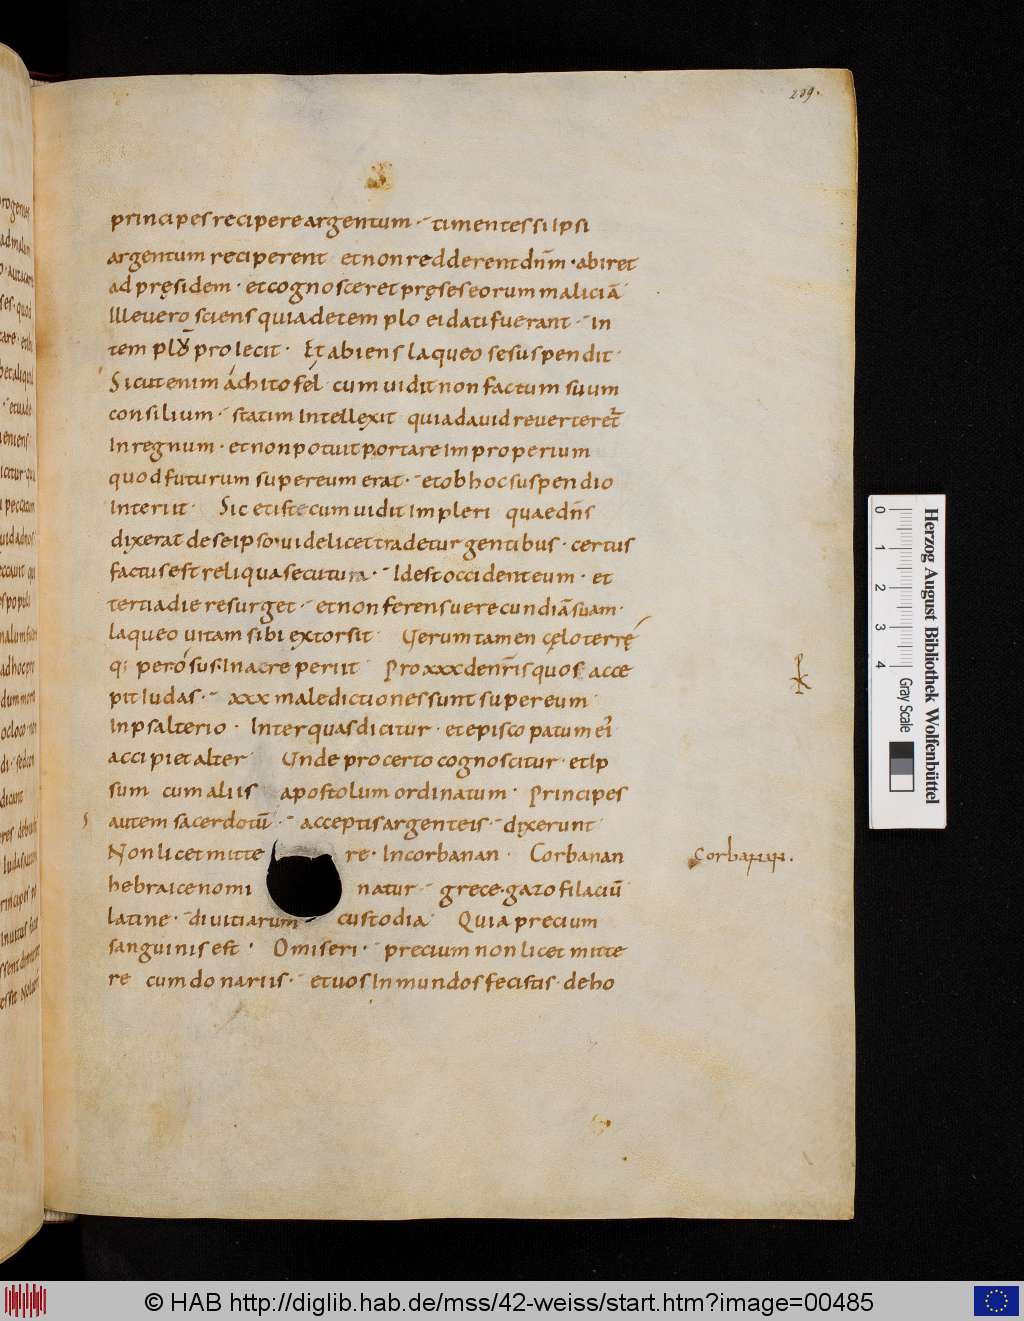 239.
principes recipere argentum · timentes si ipsi
argentum reciperent et non redderent dnm̄ · abiret
ad pręsidem · et cognosceret pręses eorum maliciā
Ille uero sciens quia de templo ei dati fuerant · in
templo proiecit · Et abiens laqueo se suspendit ·
Sicut enim áchitofél cum uidit non factum suum
consilium · statim intellexit quia dauid reuerteret̄
in regnum · et non potuit portare improperium
quod futurum super eum erat · et ob hoc suspendio
interiit · Sic et iste cum uidit impleri quae dn̄s
dixerat de se ipso · uidelicet tradetur gentibus · certus
factus est reliqua secutura · Id est occident eum · et
tertia die resurget · et non ferens uerecundiā suam ·
laqueo uitam sibi extorsit Uerum tamen cęlo terrę
q; perósus · in aere periit Pro xxx denr̄is quos acce
pit iudas · xxx maledictiones sunt super eum
in psalterio · Inter quas dicitur · et episcopatum ei'
accipiet alter Unde pro certo cognoscitur · et ip
sum cum aliis apostolum ordinatum · Principes
autem sacerdotū · acceptis argenteis · dixerunt
Non licet mitte re · in corbanan · Corbanan
hebraice nomi natur · grece · gazofilaciū
latine · diuitiarum custodia · Quia precium
sanguinis est · O miseri · precium non licet mitte
re cum donariis · et uos inmundos fecistis · de ho
Corbanan.
Herzog August Bibliothek Wolfenbüttel
0 1 2 3 4
Gray Scale
© HAB http://diglib.hab.de/mss/42-weiss/start.htm?image=00485